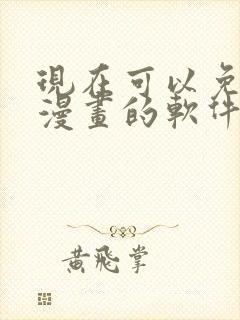 現在可以免
漫畫的軟件
黃飛掌